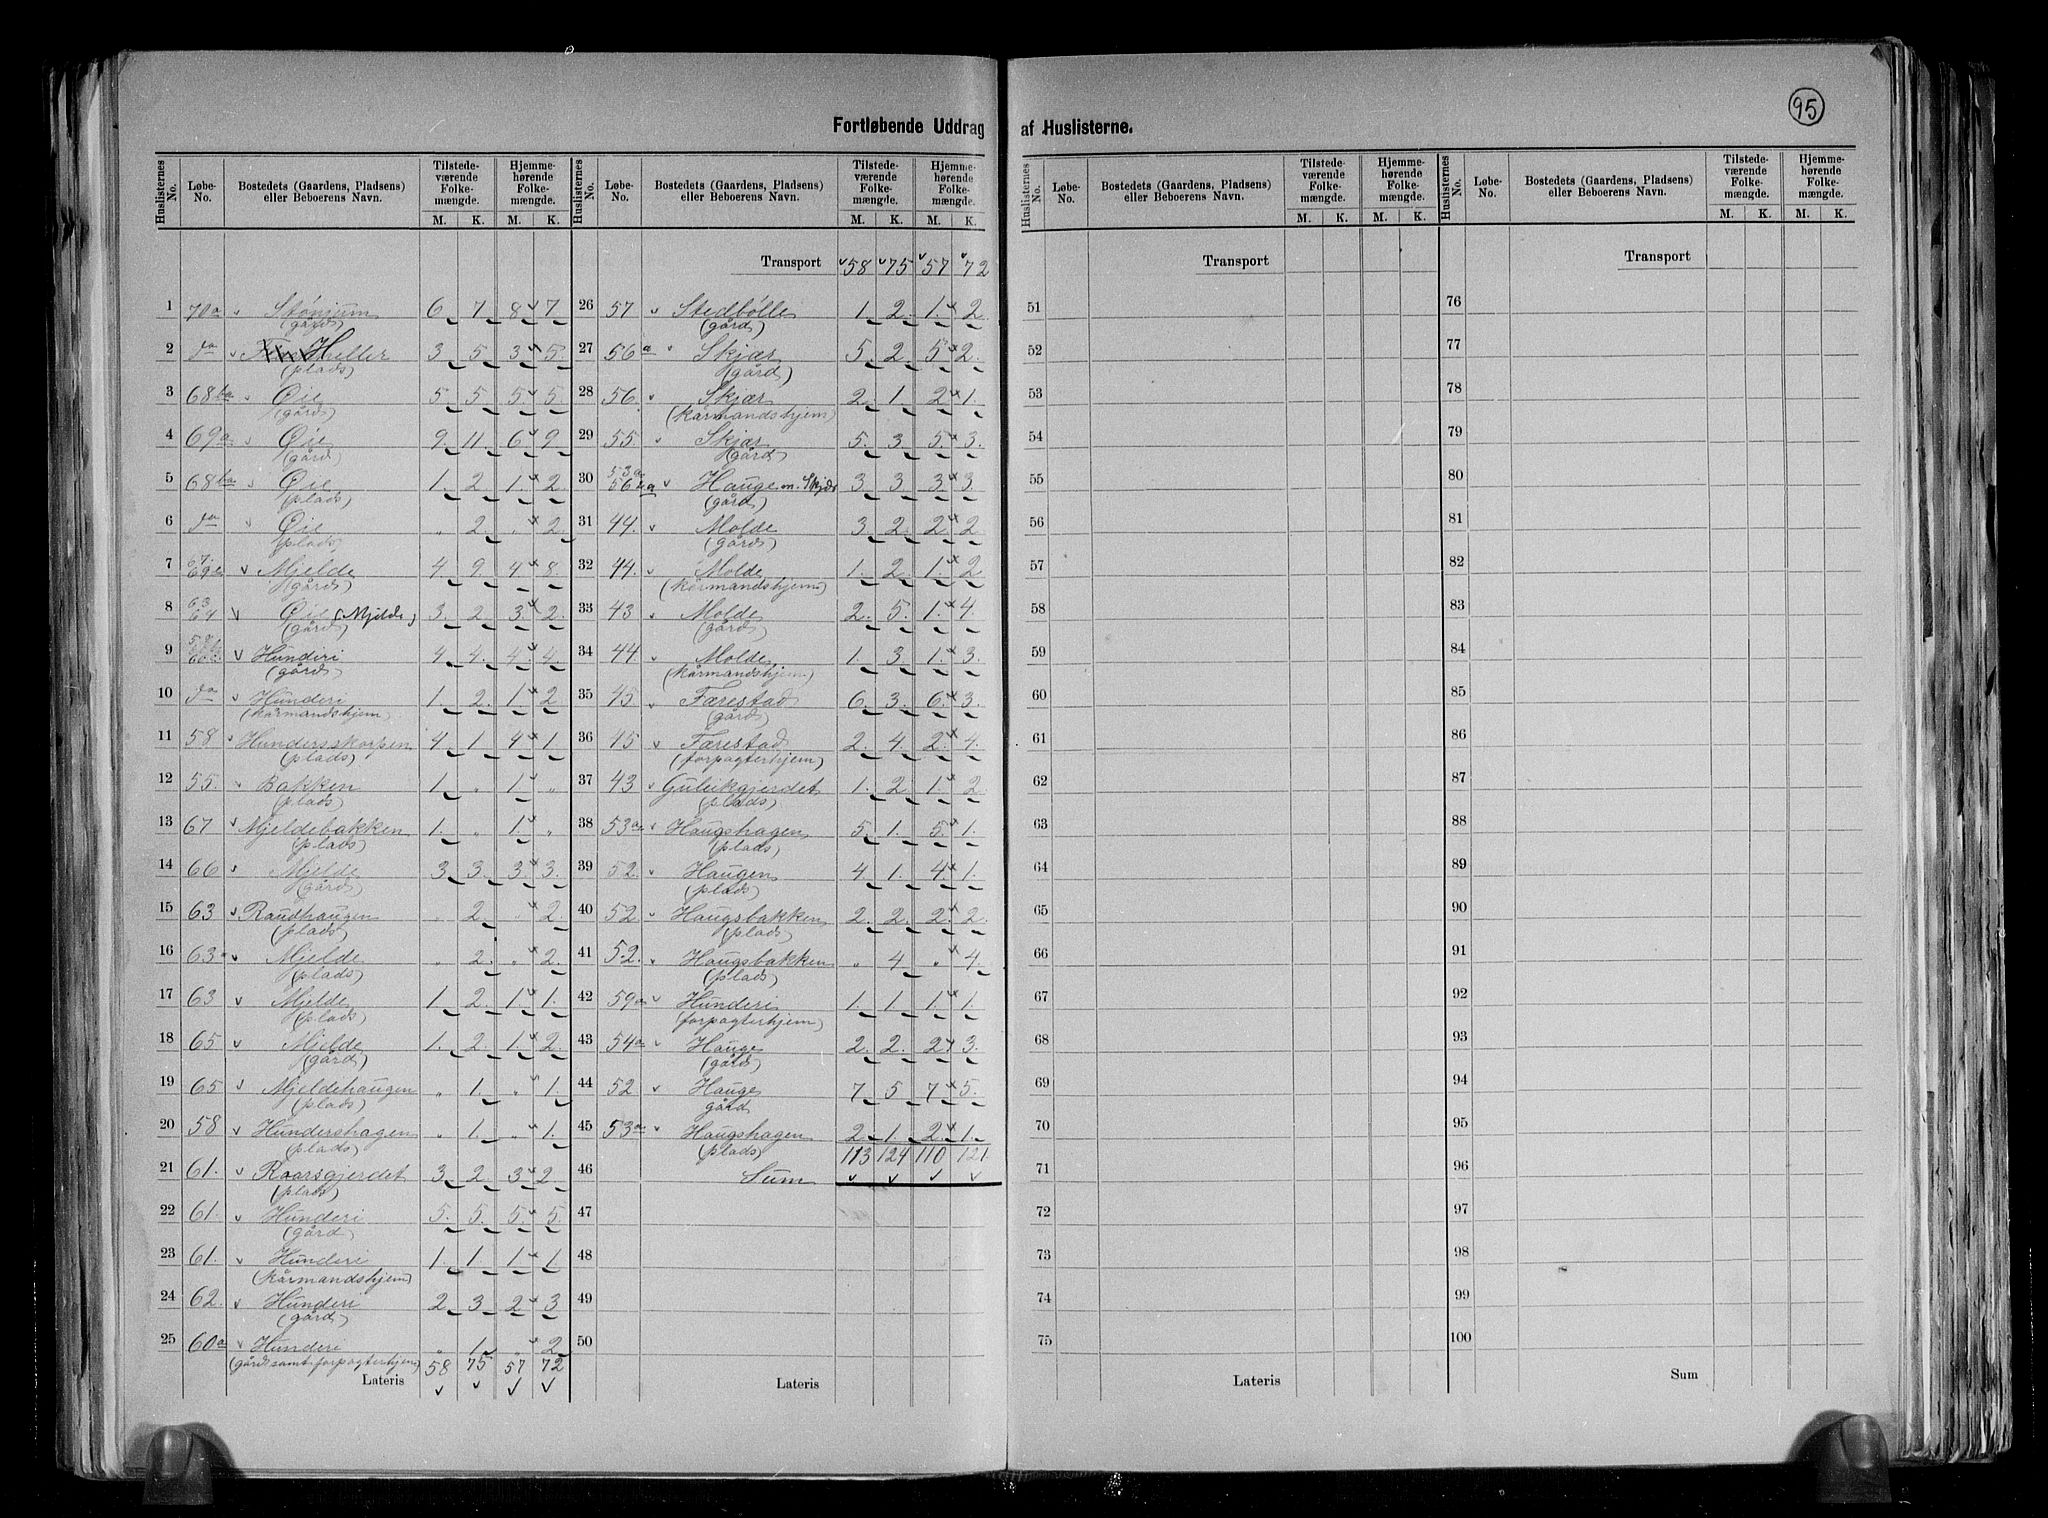 95
Fortløbende Uddrag af Huslisterne.
Huslisternes No. Løbe-No. Bostedets (Gaardens, Pladsens) eller Beboerens Navn. Tilstedeværende Folkemængde. M. K. Hjemmehørende Folkemængde. M. K.
1 70a Stønjum 6 7 8 7
(gård)
2 da Heller 3 5. 3 5.
(plads)
3 68ba Øie 5. 5 5 5.
(gård)
4 69a Øie 9. 11 6 9
(gård)
5 68ba Øie 1. 2 1. 2.
(plads)
6 da Øie " 2 " 2.
(plads)
7 67. 69 Mjelde 4 9. 4 8.
(gård)
8 63 64 Øie (Mjelde) 3. 2. 3. 2.
(gård)
9 Hunderi 4 4. 4. 4.
(gård)
10 da Hunderi 1. 2. 1. 2.
(kårmandshjem)
11 58 Hundersskorpen 4 1. 4 1.
(plads)
12 55. Bakken 1. " 1. "
(plads)
13 67 Mjeldebakken 1. " 1. "
(plads)
14 66 Mjelde 3 3. 3. 3.
(gård)
15 63 Raudhaugen " 2. " 2.
(plads)
16 63 Mjelde " 2. " 2.
(plads)
17 63 Mjelde 1 2. 1. 1.
(plads)
18 65 Mjelde 1. 2. 1. 2.
(gård)
19 65 Mjeldehaugen " 1. " 1.
(plads)
20 58 Hundershagen " 1. " 1.
(plads)
21 61. Roarsgjerdet 3 2. 3 2.
(plads)
22 61. Hunderi 5. 5. 5. 5
(gård)
23 61. Hunderi 1. 1. 1. 1
(kårmandshjem)
24 62. Hunderi 2 3 2 3
(gård)
25 60a Hunderi " 1. " 2.
(gård samt forpagterhjem) 58 75 57 72
Lateris
Huslisternes No. Løbe-No. Bostedets (Gaardens, Pladsens) eller Beboerens Navn. Tilstedeværende Folkemængde. M. K. Hjemmehørende Folkemængde. M. K.
Transport 58 75 57 72
26 57 Stedbølle 1. 2. 1. 2
(gård)
27 56a Skjær 5. 2 5 2.
(gård)
28 56. Skjær 2. 1. 2 1.
(kårmandshjem)
29 55. Skjær 5. 3 5. 3.
(gård)
30 53a 56a Hauge m. Skjær 3 3 3. 3
(gård)
31 44. Molde 3 2. 2. 2
(gård)
32 44. Molde 1. 2. 1. 2
(kårmandshjem)
33 43 Molde 2. 5. 1. 4.
(gård)
34 44 Molde 1. 3 1. 3.
(kårmandshjem)
35 45 Færestad 6. 3. 6. 3.
(gård)
36 45 Færestad 2. 4. 2. 4.
(forpagterhjem)
37 43 Guleikgjerdet 1. 2 1. 2
(plads)
38 53a Haugshagen 5. 1. 5. 1.
(plads)
39 52. Haugen 4 1. 4. 1.
(plads)
40 52 Haugsbakken 2. 2. 2. 2.
(plads)
41 52. Haugsbakken " 4 " 4.
(plads)
42 59a Hunderi 1. 1. 1. 1.
(forpagterhjem)
43 54a Hauge 2. 2. 2 3.
(gård)
44 52 Hauge 7 5 7 5.
gård
45 53a Haugshagen 2 1. 2. 1.
(plads) 113 124 110 121
46 Sum
47
48
49
50
Lateris
Huslisternes No. Løbe-No. Bostedets (Gaardens, Pladsens) eller Beboerens Navn. Tilstedeværende Folkemængde. M. K. Hjemmehørende Folkemængde. M. K.
Transport
51
52
53
54
55
56
57
58
59
60
61
62
63
64
65
66
67
68
69
70
71
72
73
74
75
Lateris
Huslisternes No. Løbe-No. Bostedets (Gaardens, Pladsens) eller Beboerens Navn. Tilstedeværende Folkemængde. M. K. Hjemmehørende Folkemængde. M. K.
Transport
76
77
78
79
80
81
82
83
84
85
86
87
88
89
90
91
92
93
94
95
96
97
98
99
100
Sum